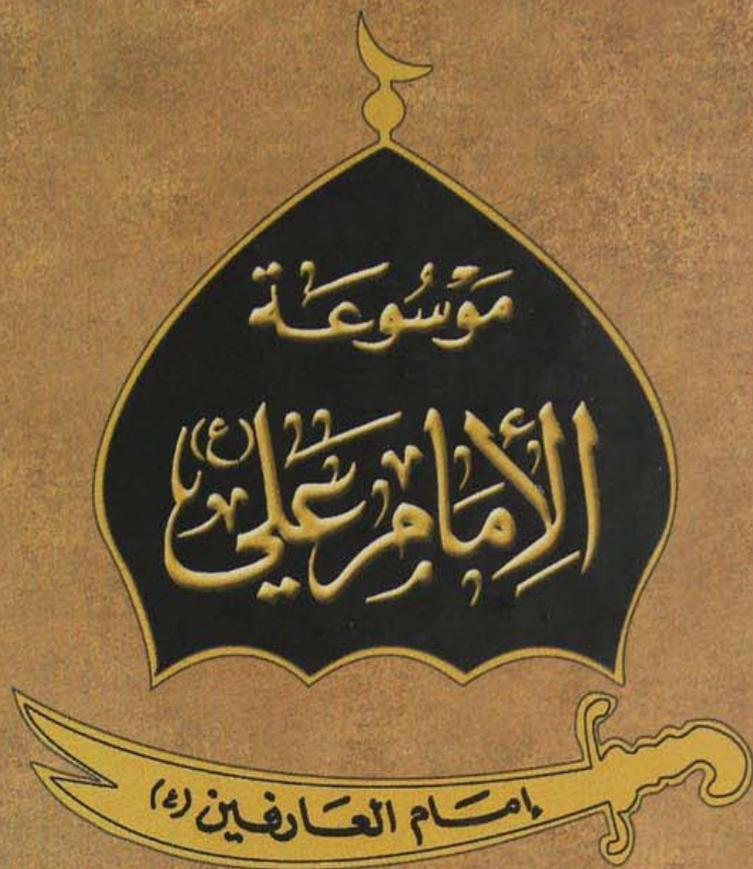 مَوْسُوعَة
الإِمَام عَلي (ع)
إمَام العَارفين (ع)